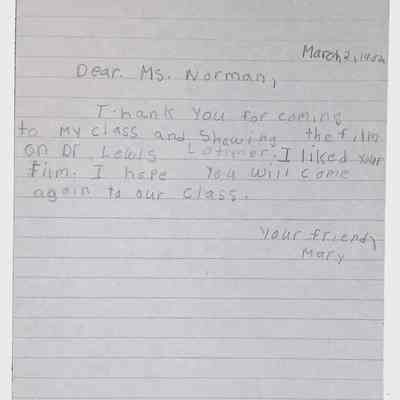 March 2,
Dear. Ms. Norman,
Thank you for coming
to my class and showing the film
on Dr. Lewis Latimer. I liked your
film. I hope you will come
again to our class.
Your friend,
Mary